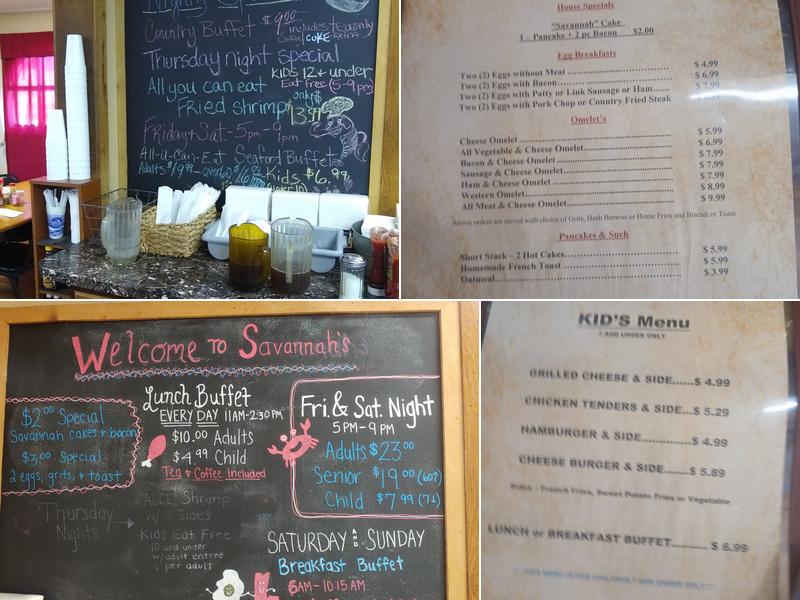 Country Buffet $9.00 includes tea only
COKE
Thursday night special
KIDS 12 + under
Eat free (5-9pm)
All you can eat
only $
Fried shrimp 13.99
Friday + Sat. - 5pm - 9pm
All-u-Can-Eat Seafood Buffet
Adults $19.99 - over 60
Kids $6.99
House Specials
"Savannah" Cake
1 – Pancake + 2 pc Bacon $2.00
Egg Breakfasts
Two (2) Eggs without Meat $ 4.99
Two (2) Eggs with Bacon $ 6.99
Two (2) Eggs with Patty or Link Sausage or Ham $ 7.99
Two (2) Eggs with Pork Chop or Country Fried Steak
Omelet's
Cheese Omelet $ 5.99
All Vegetable & Cheese Omelet $ 6.99
Bacon & Cheese Omelet $ 7.99
Sausage & Cheese Omelet $ 7.99
Ham & Cheese Omelet $ 7.99
Western Omelet $ 8.99
All Meat & Cheese Omelet $ 9.99
Above orders are served with choice of Grits, Hash Browns or Home Fries and Biscuit or Toast
Pancakes & Such
Short Stack – 2 Hot Cakes $ 5.99
Homemade French Toast $ 5.99
Oatmeal $ 3.99
Welcome To Savannah's
$2.00 Special
Savannah cakes + bacon
$3.00 Special
2 eggs, grits, + toast
Lunch Buffet
EVERY DAY 11AM-2:30PM
$10.00 Adults
$4.99 Child
Tea + Coffee Included
Fri. & Sat. Night
5PM-9PM
Adults $23.00
Senior $19.00 (60+)
Child $7.99 (7↓)
Thursday Nights
AUCE Shrimp
W/ 2 Sides
Kids Eat Free
10 and under
w/ adult entree
1 per adult
SATURDAY AND SUNDAY
Breakfast Buffet
6AM-10:15AM
KID'S Menu
7 AND UNDER ONLY
GRILLED CHEESE & SIDE......$ 4.99
CHICKEN TENDERS & SIDE...$ 5.29
HAMBURGER & SIDE..............$ 4.99
CHEESE BURGER & SIDE......$ 5.89
Sides – French Fries, Sweet Potato Fries or Vegetable
LUNCH or BREAKFAST BUFFET.......... $ 6.99
THIS MENU IS FOR CHILDREN 7 AND UNDER ONLY